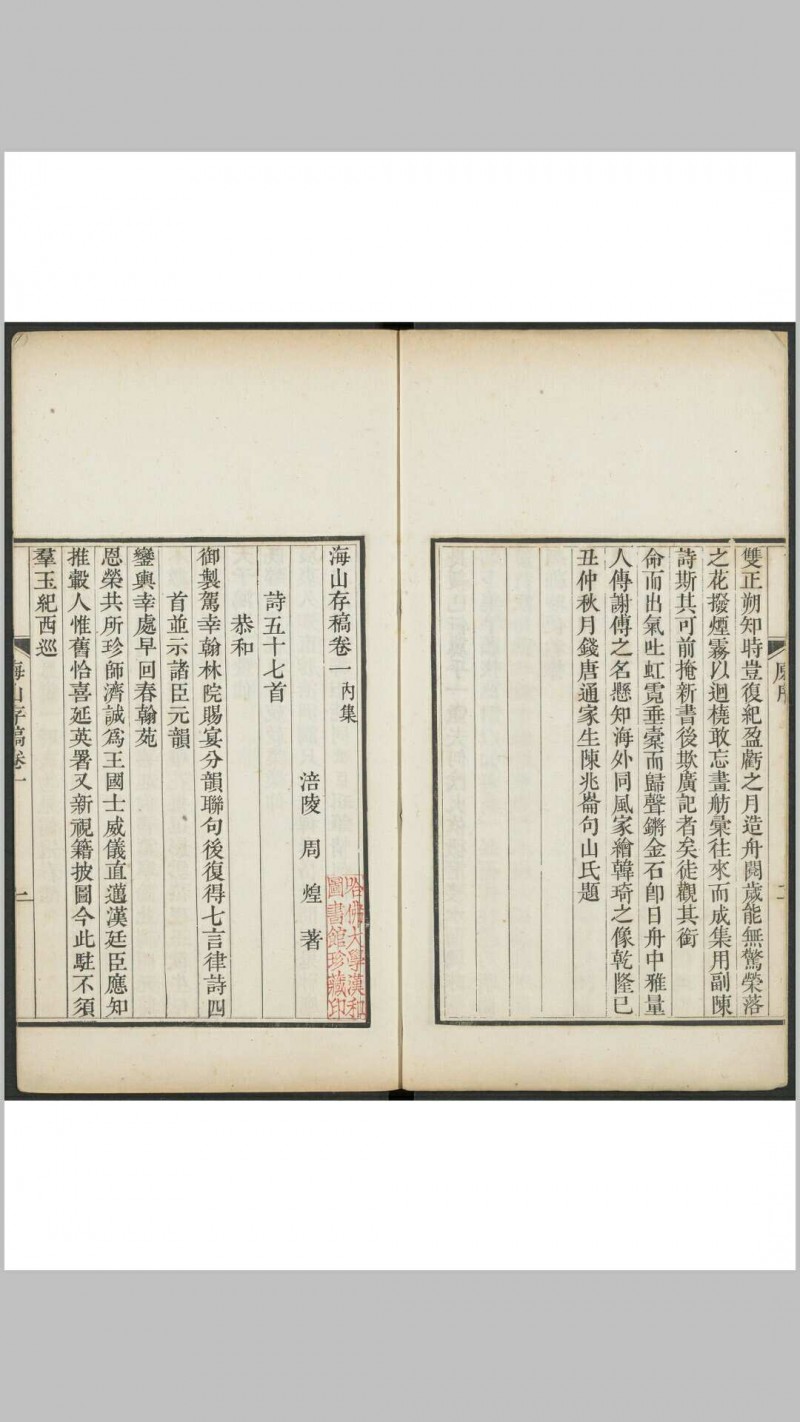 雙正朔知時豈復紀盈虧之月造舟閱歲能無驚榮落
之花撥煙霧以迴橈敢忘畫舫彙往來而成集用副陳
詩斯其可前掩新書後欺廣記者矣徒觀其銜
命而出氣吐虹霓垂橐而歸聲鏘金石卽日舟中雅量
人傳謝傅之名懸知海外同風家繪韓琦之像乾隆己
丑仲秋月錢唐通家生陳兆崙句山氏題
海山存稿卷一內集
涪陵周煌著
詩五十七首
恭和
御製駕幸翰林院賜宴分韻聯句後復得七言律詩四
首並示諸臣元韻
鑾輿幸處早回春翰苑
恩榮共所珍師濟誠爲王國士威儀直邁漢廷臣應知
推轂人惟舊恰喜延英署又新視籍披圖今此駐不須
羣玉紀西巡
海山存稿卷一
一
哈佛大學漢和
圖書館珍藏印